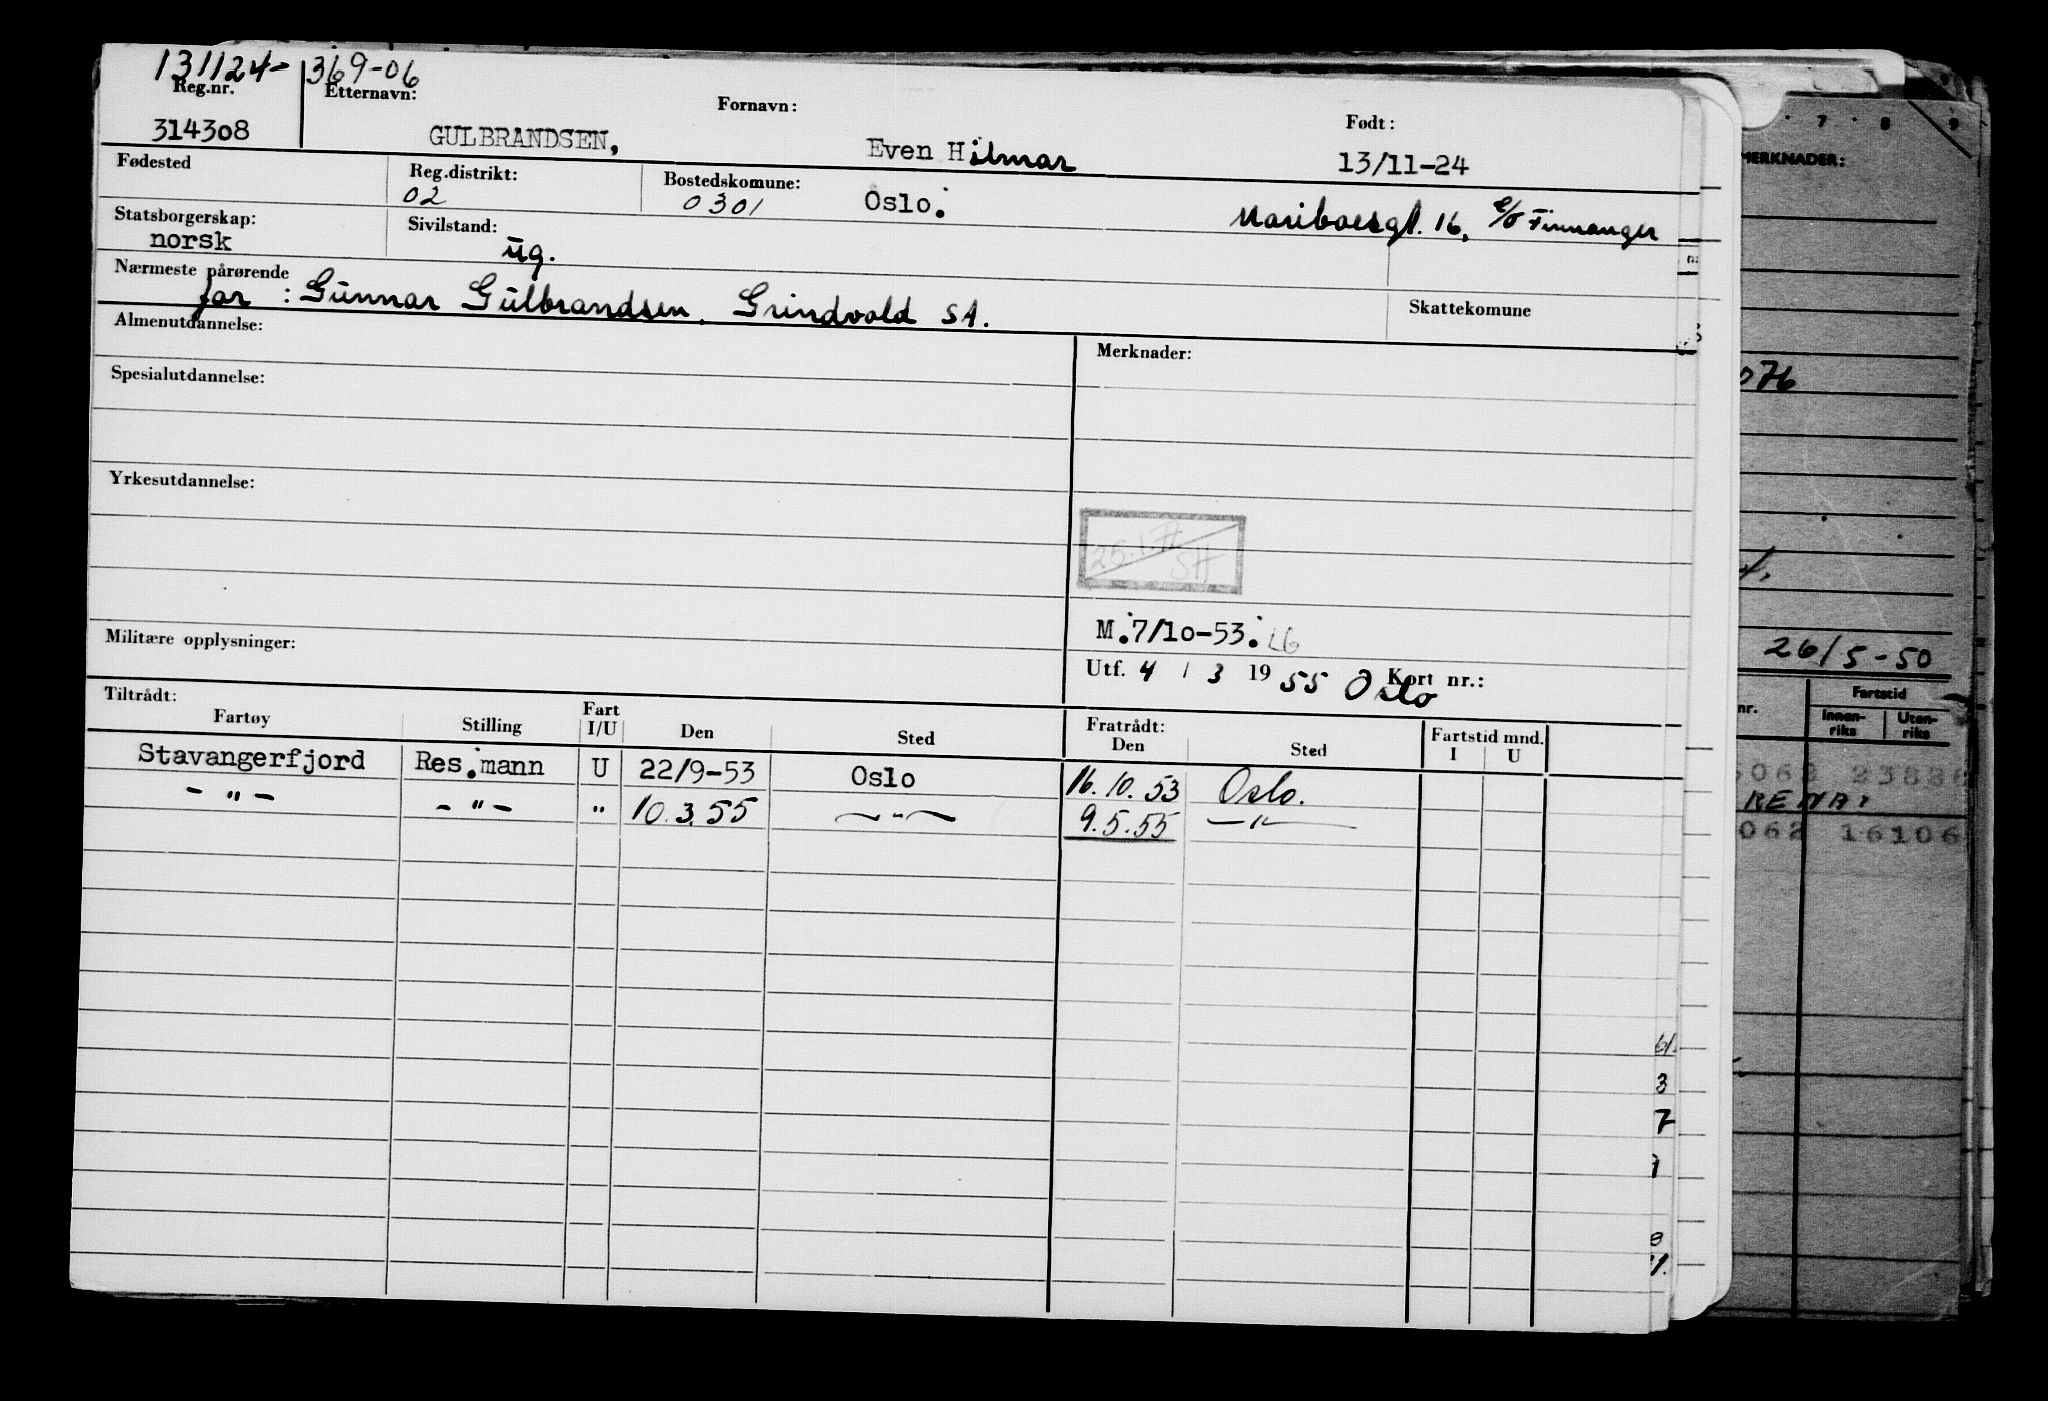 131124-369-06
Reg.nr. Etternavn: Fornavn: Født:
314308 GULBRANDSEN, Even Hilmar 13/11-24
Fødested Reg.distrikt: Bostedskomune: Oslo.
02 0301 Mariboesgt. 16, c/o Finnanger
Statsborgerskap: Sivilstand:
norsk ug.
Nærmeste pårørende
far : Gunnar Gulbrandsen, Grindvold SA. Skattekomune
Almenutdannelse: Merknader:
Spesialutdannelse:
Yrkesutdannelse:
SH
M.7/10-53.
Militære opplysninger:
Utf. 4 / 3 1955 Oslo Kort nr.:
Tiltrådt: Fratrådt:
Fartøy Stilling Fart I/U Den Sted Den Sted Fartstid mnd. I U
Stavangerfjord Res.mann U 22/9-53 Oslo 16.10.53 Oslo.
- " - - " - " 10.3.55 - " - 9.5.55 - " -
7 8 9
MERKNADER:
076
26/5-50
nr. Fartstid
Innen-riks Uten-riks
062 16106